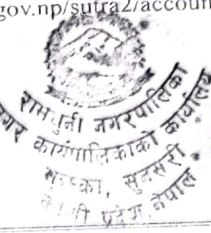 gov.np/sutra2/accoun
रामधुनी नगरपालिका
नगर कार्यपालिकाको कार्यालय
सुनसरी
प्रदेश, नेपाल